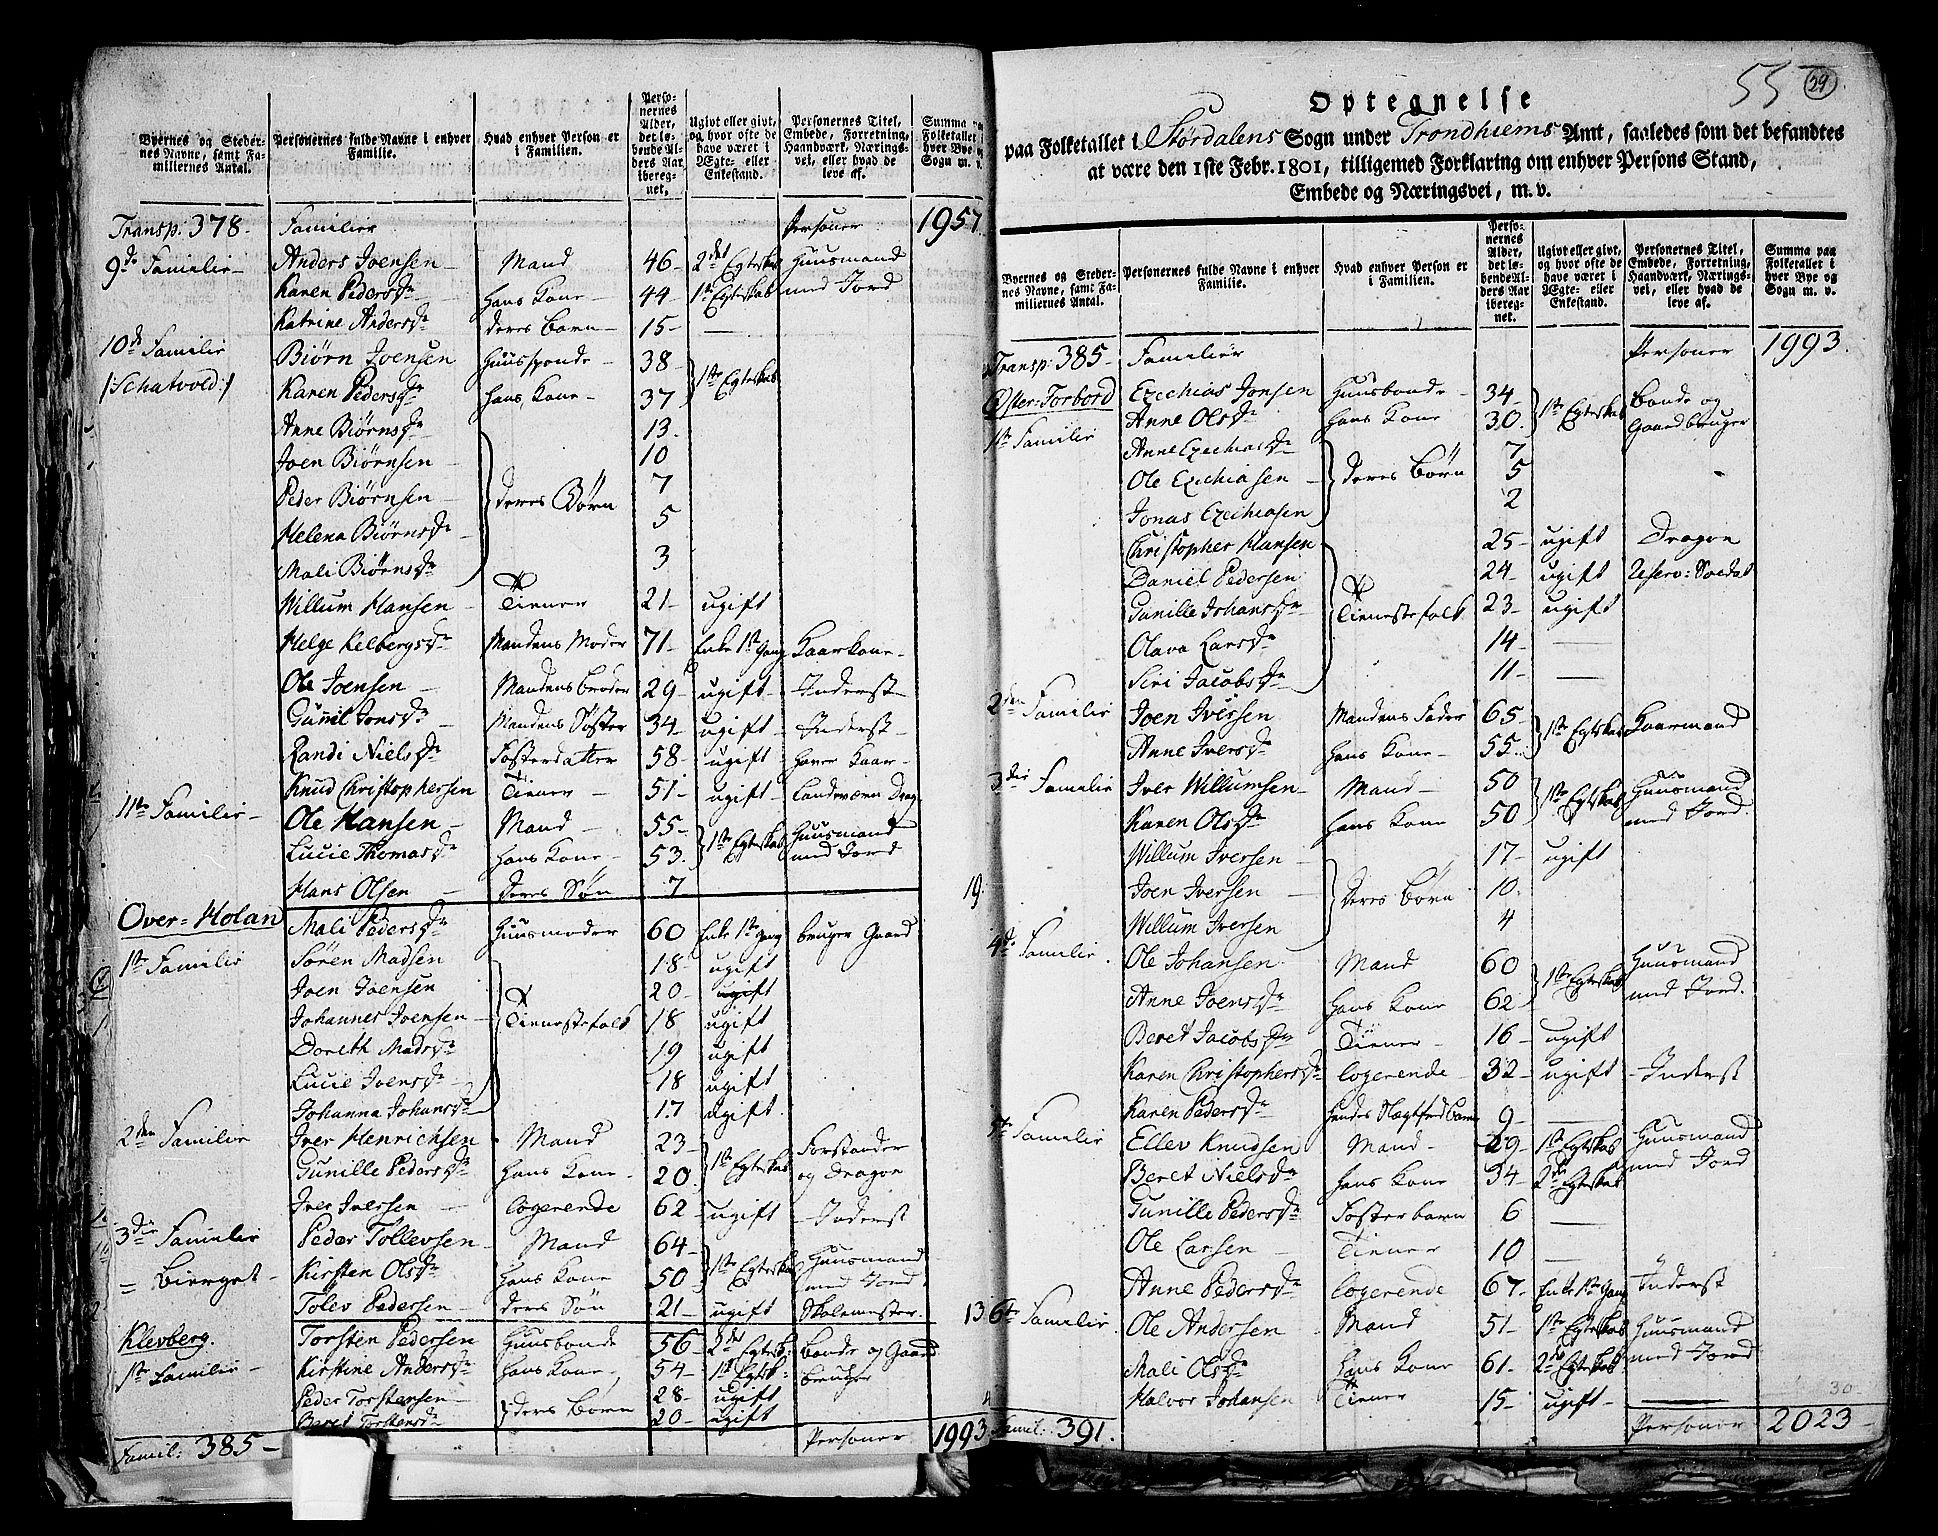 Byernes og Stedernes Navne, samt Familiernes Antal. | Personernes fulde Navne i enhver Familie. | Hvad enhver Person er i Familien. | Personernes Alder, det løbende Alders Aar iberegnet. | Ugivt eller givt, og hvor ofte de have været i Ægte- eller Enkestand. | Personernes Titel, Embede, Forretning, Haandværk, Næringsvei, eller hvad de leve af. | Summa Folketallet hver Bye Sogn m. v.
Transp: 378. Familier Personer 1957.
9de Familie Anders Joensen Mand 46 2det Egteskab Huusmand
Karen Pedersdr hans Kone 44 1te Egteskab med Jord
Katrine Andersdr deres Barn 15
10de Familie Biørn Joensen Huusbonde 38 1te Egteskab
/:Schatvold:/ Karen Pedersdr hans Kone 37
Anne Biørnsdr 13.
Joen Biørnsen 10
Peder Biørnsen deres Børn 7
Helena Biørnsdr 5
Mali Biørnsdr 3
Willum Hansen Tiener 21 ugift
Helge Kelbergsdr Mandens Moder 71 Enke 1te Gang Kaarkone
Ole Joensen Mandens broder 29 ugift Inderst
Gunnil Jonsdr Mandens Søster 34 ugift Inderst
Randi Nielsdr Fosterdatter 58 ugift haver Kaar
Knud Christophersen Tiener 51 ugift Landeværn Drag.
11te Familie Ole Hansen Mand 55 1te Egteskab Huusmand
Lucie Thomasdr hans Kone 53. med Jord
Hans Olsen deres Søn 7 19.
Over-Holan Mali Pedersdr Huusmoder 60 Enke 1te Gang bruger Gaard
1te Familie Søren Madsen 18 ugift
Joen Joensen 20 ugift
Johannes Joensen Tienestefolk 18 ugift
Doreth Madsdr 19 ugift
Lucie Joensdr 18 ugift
Johanna Johansdr 17 ugift.
2den Familie Iver Henrichsen Mand 23 1te Egteskab Forstander
Gunille Pedersdr hans Kone 20. og Dragon
Iver Iversen logerende 62 ugift Inderst
3die Familie Peder Tollevsen Mand 64 1te Egteskab Huusmand
= Bierget Kirsten Olsdr hans Kone 50 med Jord
Tolev Pedersen deres Søn 21 ugift Skolemester. 13
Klevberg. Torsten Pedersen Huusbonde 56 2det Egtesk: Bonde og Gaard
1te Familie Kirstine Andersdr hans Kone 54 1te Egtesk: bruger
Peder Torstensen deres Børn 28 ugift
Beret Torstensdr 20 ugift 4
Famil: 385 Personer 1993
55 29
Optegnelse
paa Folketallet i Størdalens Sogn under Trondhiems Amt, saaledes som det befandtes
at være den 1ste Febr. 1801, tilligemed Forklaring om enhver Persons Stand,
Embede og Næringsvei, m. v.
Byernes og Stedernes Navne, samt Familiernes Antal. | Personernes fulde Navne i enhver Familie. | Hvad enhver Person er i Familien. | Personernes Alder, det løbende Alders Aar iberegnet. | Ugivt eller givt, og hvor ofte de have været i Ægte- eller Enkestand. | Personernes Titel, Embede, Forretning, Haandværk, Næringsvei, eller hvad de leve af. | Summa paa Folketallet i hver Bye og Sogn m. v.
Transp: 385 Familier Personer 1993.
Øster-Forbord Ezechias Jonsen Huusbonde 34 1te Egteskab Bonde og
1te Familie Anne Olsdr hans Kone 30. Gaardbruger
Anne Ezechiasdr 7
Ole Ezechiasen deres Børn 5
Jonas Ezechiasen 2
Christopher Hansen 25 ugift Dragon
Daniel Pedersen 24 ugift reserv: Soldat
Gunille Johansdr Tienestefolk 23 ugift
Olava Larsdr 14
Siri Jacobsdr 11
2den Familie Joen Iversen Mandens Fader 65 1te Egteskab Kaarmand
Anne Iversdr hans Kone 55
3die Familie Iver Willumsen Mand 50 1te Egteskab Huusmand
Karen Olsdr hans Kone 50 med Jord.
Willum Iversen 17 ugift
Joen Iversen deres Børn 10.
Willum Iversen 4
4de Familie. Ole Johansen Mand 60 1te Egteskab Huusmand
Anne Joensdr hans Kone 62 med Jord.
Beret Jacobsdr Tiener 16 ugift
Karen Christophersdr logerende 32 ugift Inderst
Karen Pedersdr hendes Slægtfød barn 9
5te Familie Ellev Knudsen Mand 29 1te Egteskab Huusmand
Beret Nielsdr hans Kone 34 2det Egteskab med Jord
Gunille Pedersdr Fosterbarn 6
Ole Larsen Tiener 10
Anne Pedersdr logerende 67. Enke 1te Gang Inderst
6te Familie. Ole Andersen Mand 51 1te Egteskab Huusmand
Mali Olsdr hans Kone 61 2det Egteskab med Jord
Halvor Johansen Tiener 15 ugift 30
Famil: 391. Personer 2023